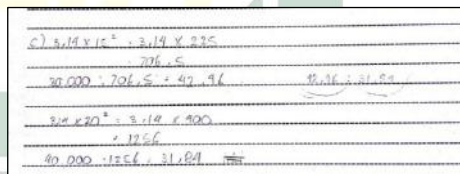 c) 3,14 x 15² = 3,14 x 225
= 706,5
30.000 : 706,5 = 42,46 42,46 : 31,84
3,14 x 20² = 3,14 x 400
= 1256
40.000 : 1256 = 31,84